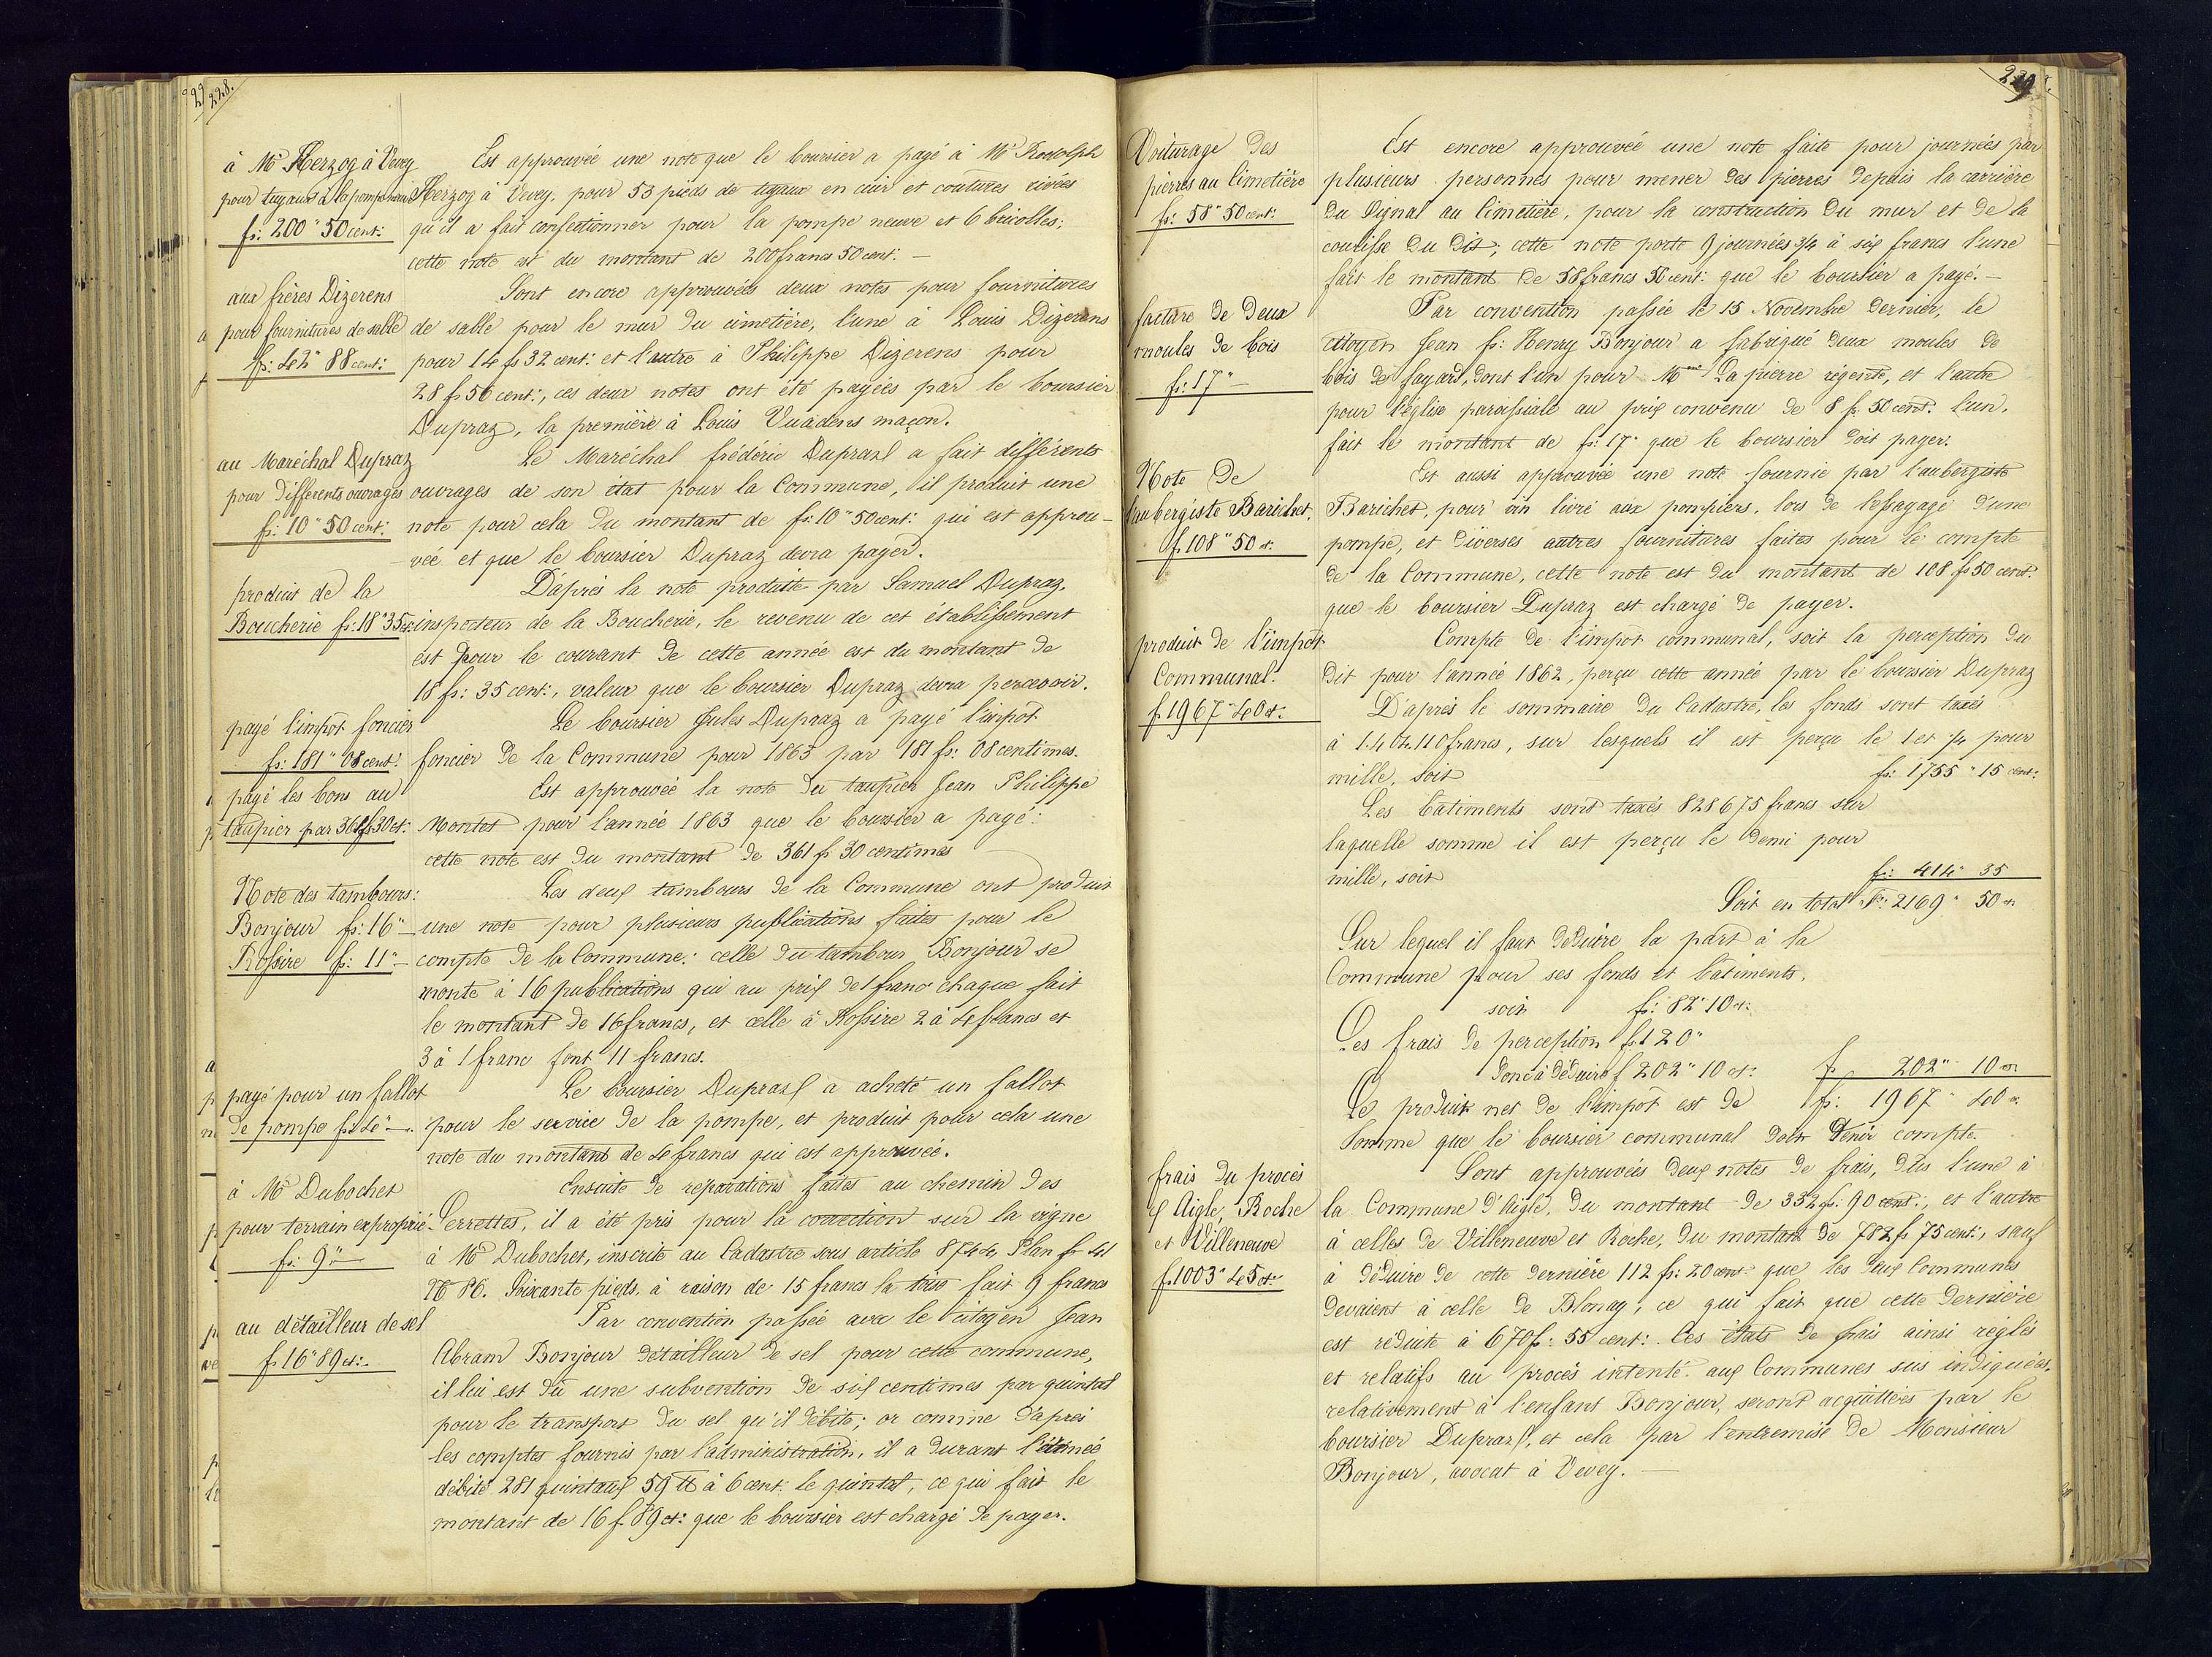 228.
à Mr Herzog à Vevey
pour tuyaux à la pompe neuve
fr: 200" 50 cent:
Est approuvée une note que le boursier a payé à Mr Rodolph
Herzog à Vevey, pour 53 pieds de tuyaux en cuir et coutures rivées
qu'il a fait confectionner pour la pompe neuve et 6 bricolles;
cette note est du montant de 200 francs 50 cent: —
aux frères Dizerens
pour fournitures de sable
fr: 42" 88 cent:
Sont encore approuvées deux notes pour fournitures
de sable pour le mur du cimetière, l'une à Louis Dizerens
pour 14 fs 32 cent: et l'autre à Philippe Dizerens pour
28 fr 56 cent:, ces deux notes ont été payées par le boursier
Dupraz, la première à Louis Vuadens maçon.
au Maréchal Dupraz
pour différents ouvrages
fr: 10" 50 cent:
Le Maréchal frédéric Duprasz a fait différents
ouvrages de son état pour la Commune, il produit une
note pour cela du montant de fr: 10" 50 cent: qui est approu-
vée et que le boursier Dupraz devra payer.
produit de la
Boucherie fr: 18" 35 ct:
D'après la note produite par Samuel Dupraz,
inspecteur de la Boucherie, le revenu de cet établissement
est pour le courant de cette année est du montant de
18 fr: 35 cent:, valeur que le boursier Dupraz devra percevoir.
payé l'impôt foncier
fr: 181" 08 cent:
Le boursier Jules Dupraz a payé l'impôt
foncier de la Commune pour 1863 par 181 fr: 08 centimes.
payé les bons au
taupier par 361 fr 30 ct:
Est approuvée la note du taupier Jean Philippe
Montet pour l'année 1863 que le boursier a payé:
cette note est du montant de 361 fr 30 centimes
Note des tambours:
Bonjour fr: 16" —
Rossire fr: 11" —
Les deux tambours de la Commune ont produit
une note pour plusieurs publications faites pour le
compte de la Commune: celle du tambour Bonjour se
monte à 16 publications qui au prix de 1 franc chaque fait
le montant de 16 francs, et celle à Rossire 2 à 4 francs et
3 à 1 franc font 11 francs.
payé pour un fallot
de pompe fr: 4" —
Le boursier Duprasz a acheté un fallot
pour le service de la pompe, et produit pour cela une
note du montant de 4 francs qui est approuvée.
à Mr Dubochet
pour terrain exproprié
fr: 9" —
Ensuite de réparations faites au chemin des
Perrettes, il a été pris pour la correction sur la vigne
à Mr Dubochet, inscrite au Cadastre sous article 8744 Plan fo 41
No 86. Soixante pieds, à raison de 15 francs la toise fait 9 francs
au détailleur de sel
fr 16" 89 ct: —
Par convention passée avec le citoyen Jean
Abram Bonjour détailleur de sel pour cette commune,
il lui est dû une subvention de six centimes par quintal
pour le transport du sel qu'il débite; or comme d'après
les comptes fournis par l'administration, il a durant l'année
débité 281 quintaux 59 ℔ à 6 cent: le quintal, ce qui fait le
montant de 16 f. 89 ct: que le boursier est chargé de payer.
229
Voiturage des
pierres au Cimetière
fr: 58" 50 cent:
Est encore approuvée une note faite pour journées par
plusieurs personnes pour mener des pierres depuis la carrière
du Signal au Cimetière, pour la construction du mur et de la
coulisse du dit; cette note porte 9 journées 3/4 à six francs l'une
fait le montant de 58 francs 50 cent: que le boursier a payé. —
facture de deux
moules de bois
fr: 17" —
Par convention passée le 15 Novembre dernier, le
citoyen Jean fs: Henry Bonjour a fabriqué deux moules de
bois de fayard, dont l'un pour Mme Lapierre régente, et l'autre
pour l'église paroissiale au prix convenu de 8 fr. 50 cent: l'un,
fait le montant de fr: 17" que le boursier doit payer.
Note de
l'aubergiste Barichet,
f. 108" 50 ct:
Est aussi approuvée une note fournie par l'aubergiste
Barichet, pour vin livré aux pompiers, lors de l'essayage d'une
pompe, et diverses autres fournitures faites pour le compte
de la Commune, cette note est du montant de 108 fr 50 cent:
que le boursier Dupraz est chargé de payer.
produit de l'impôt
Communal.
f 1967" 40 ct:
Compte de l'impôt communal, soit la perception du
dit pour l'année 1862, perçu cette année par le boursier Dupraz
D'après le sommaire du Cadastre, les fonds sont taxés
à 1.404.110 francs, sur lesquels il est perçu le 1 et 1/4 pour
mille, soit fr: 1755" 15 cent:
Les bâtiments sont taxés 828675 francs sur
laquelle somme il est perçu le demi pour
mille, soit fr: 414" 35
Soit en total Fr: 2169" 50 ct
Sur lequel il faut déduire la part à la
Commune pour ses fonds et bâtiments,
soit fr: 82" 10 ct:
Les frais de perception fr 120"
Donc à déduire f 202" 10 ct: fr 202" 10 ct
Le produit net de l'impôt est de fr: 1967" 40 ct
Somme que le boursier communal doit tenir compte.
frais du procès
Aigle, Roche
et Villeneuve
f. 1003" 45 ct:
Sont approuvées deux notes de frais, dûs l'une à
la Commune d'Aigle, du montant de 332 fr: 90 cent:, et l'autre
à celles de Villeneuve et Roche, du montant de 782 fr 75 cent:, sauf
à déduire de cette dernière 112 fr: 20 cent: que les deux Communes
devaient à celle de Blonay, ce qui fait que cette dernière
est réduite à 670 fr: 55 cent: Ces états de frais ainsi réglés
et relatifs au procès intenté aux Communes sus indiquées,
relativement à l'enfant Bonjour, seront acquittées par le
boursier Duprasz, et cela par l'entremise de Monsieur
Bonjour, avocat à Vevey. —